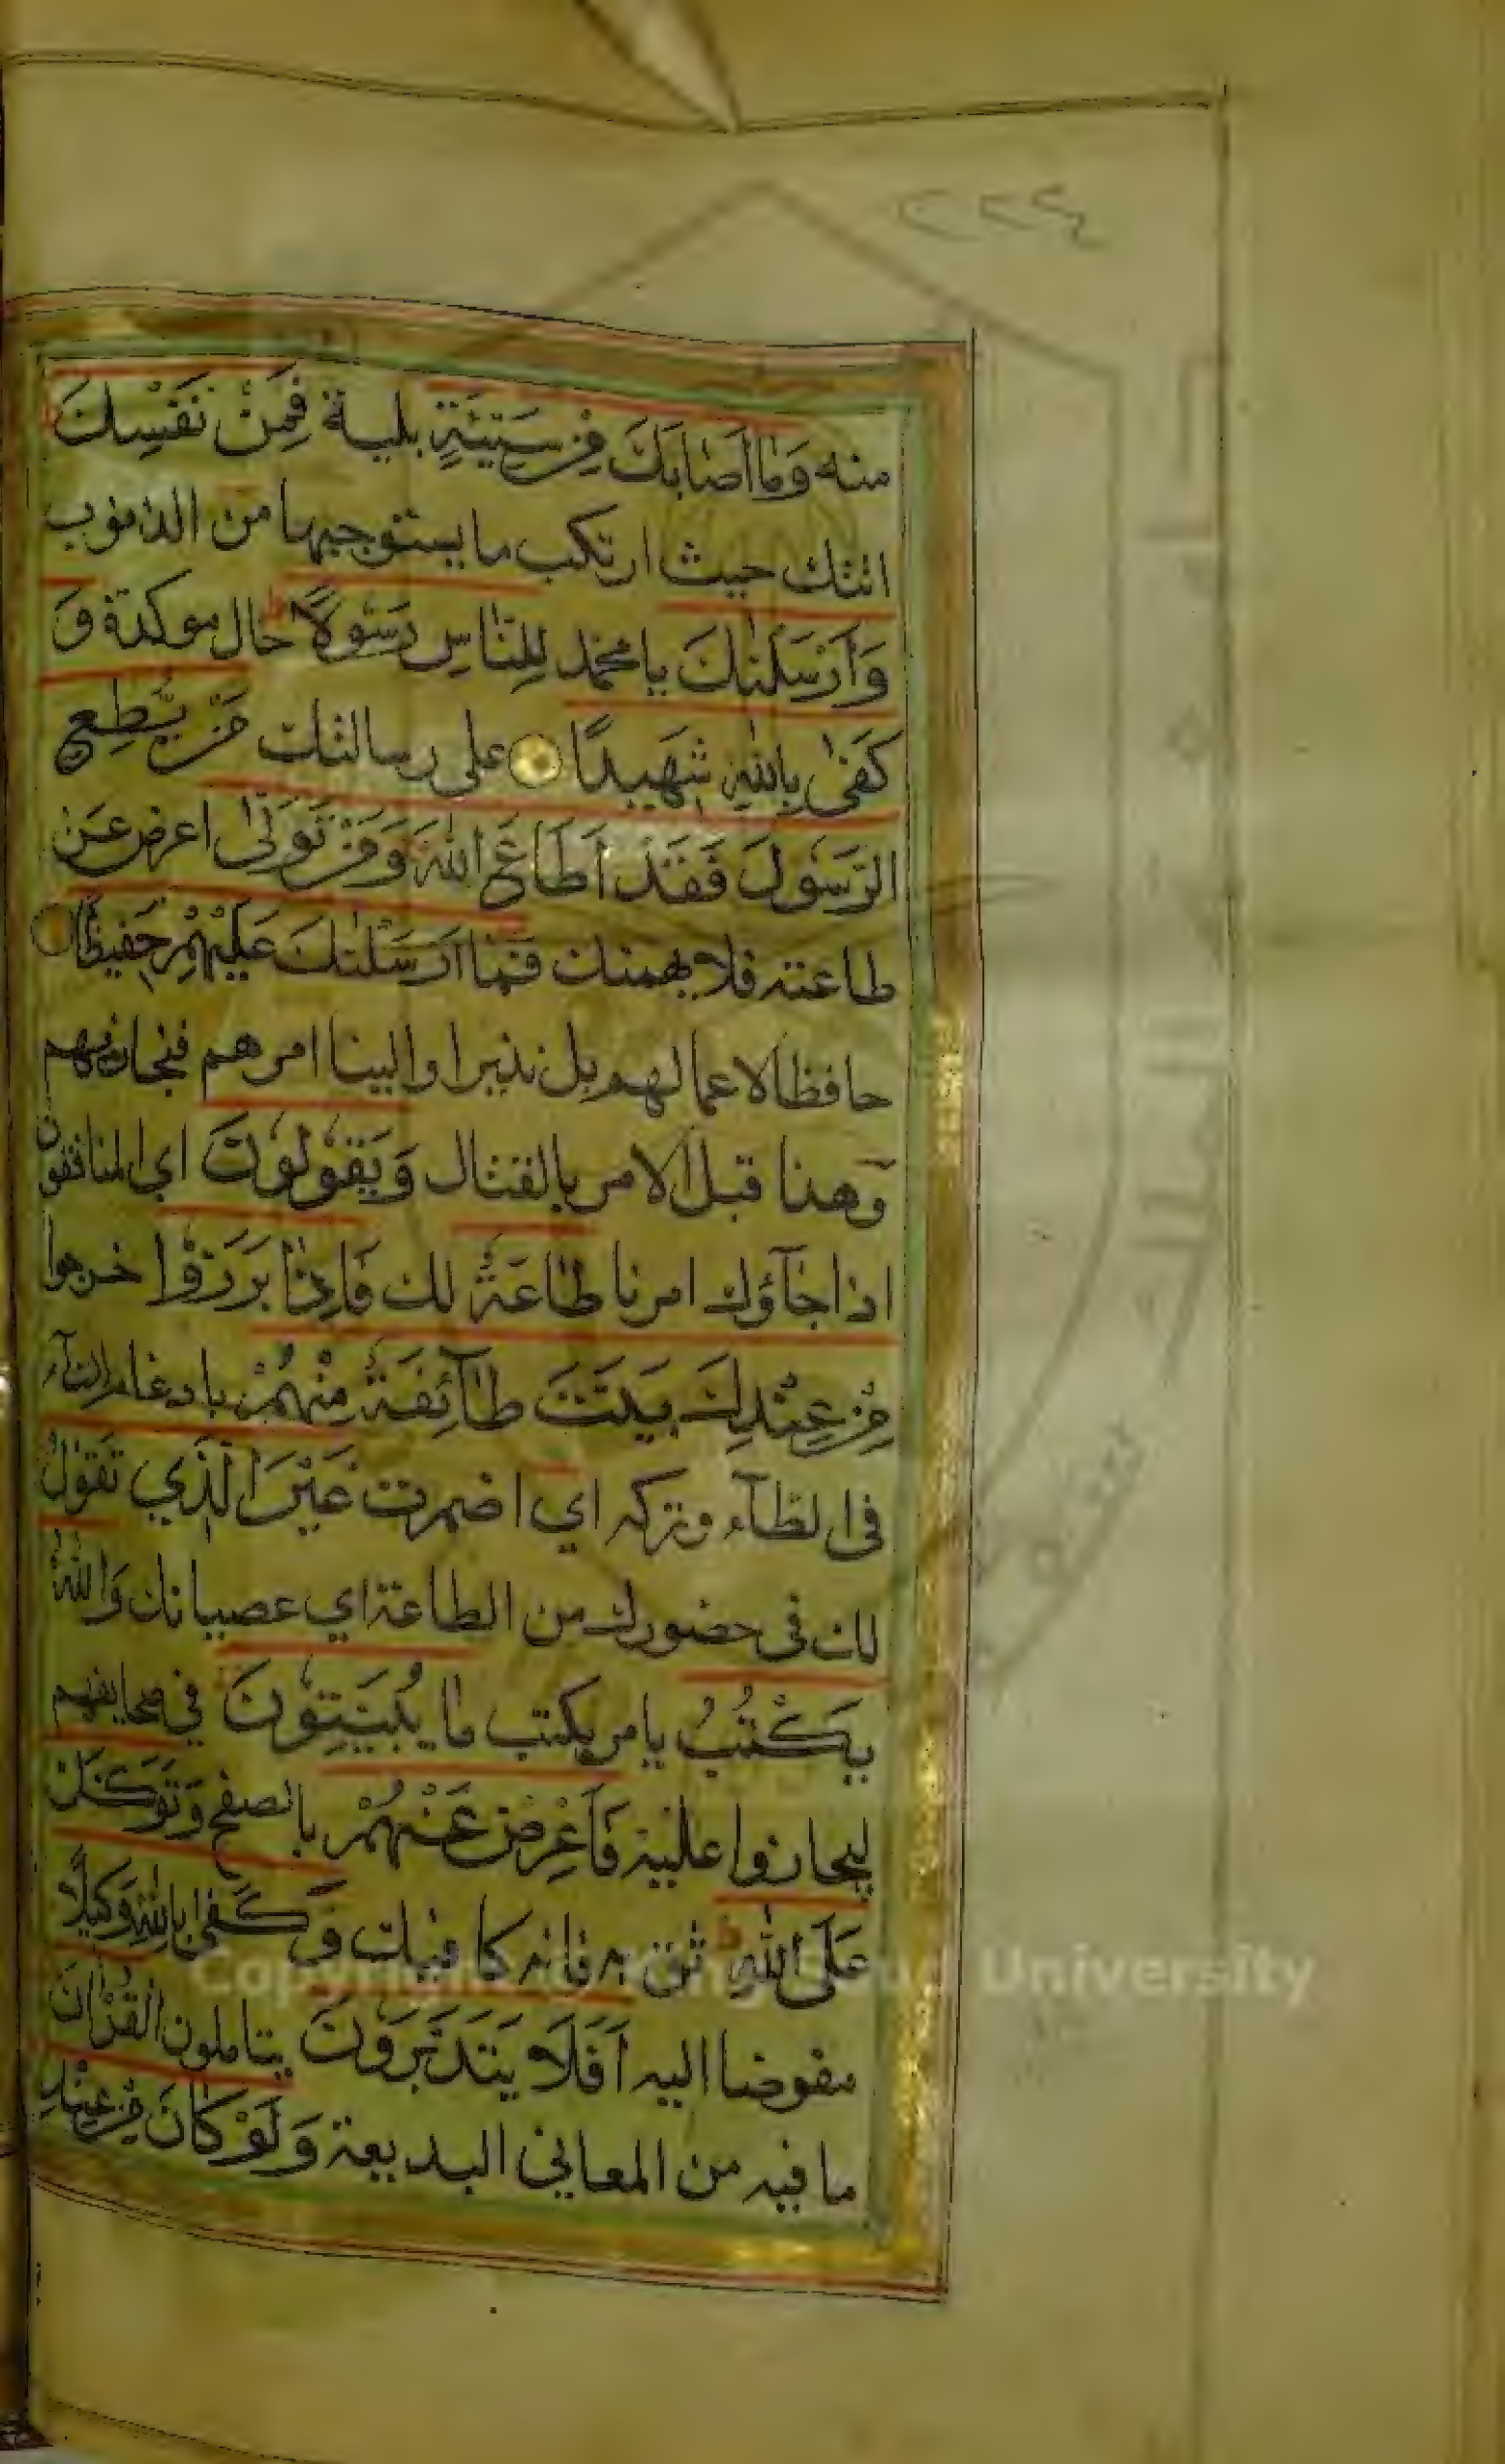 ٢٢٤
منه وَمَا اَصَابَكَ مِنْ سَيِّئَةٍ بلية فَمِنْ نَفْسِكَ
اتتك حيث ارتكب ما يستوجبها من الذنوب
وَاَرْسَلْنَاكَ يا محمد لِلنَّاسِ رَسُولًا حال موكدة وَ
كَفٰى بِاللّٰهِ شَهِيدًا على رسالتك مَنْ يُطِعِ
الرَّسُولَ فَقَدْ اَطَاعَ اللّٰهَ وَمَنْ تَوَلّٰى اعرض عن
طاعته فلا يهمنك فَمَا اَرْسَلْنَاكَ عَلَيْهِمْ حَفِيظًا
حافظا لاعمالهم بل نذيرا والينا امرهم فنجازيهم
وهذا قبل الامر بالقتال وَيَقُولُونَ اي المنافقون
اذا جآؤك امرنا طَاعَةٌ لك فَاِذَا بَرَزُوا خرجوا
مِنْ عِنْدِكَ بَيَّتَ طَآئِفَةٌ مِنْهُمْ بادغام التآء
فى الطآء وتركه اي اضمرت غَيْرَ الَّذِي تَقُولُ
لك فى حضورك من الطاعة اي عصيانك وَاللّٰهُ
يَكْتُبُ يامر بكتب مَا يُبَيِّتُونَ في صحايفهم
ليجازوا عليه فَاَعْرِضْ عَنْهُمْ بالصفح وَتَوَكَّلْ
عَلَى اللّٰهِ ثق به فانه كافيك وَكَفٰى بِاللّٰهِ وَكِيلًا
مفوضا اليه اَفَلَا يَتَدَبَّرُونَ يتاملون الْقُرْاٰنَ
ما فيه من المعاني البديعة وَلَوْ كَانَ مِنْ عِنْدِ
Copyright © King Saud University